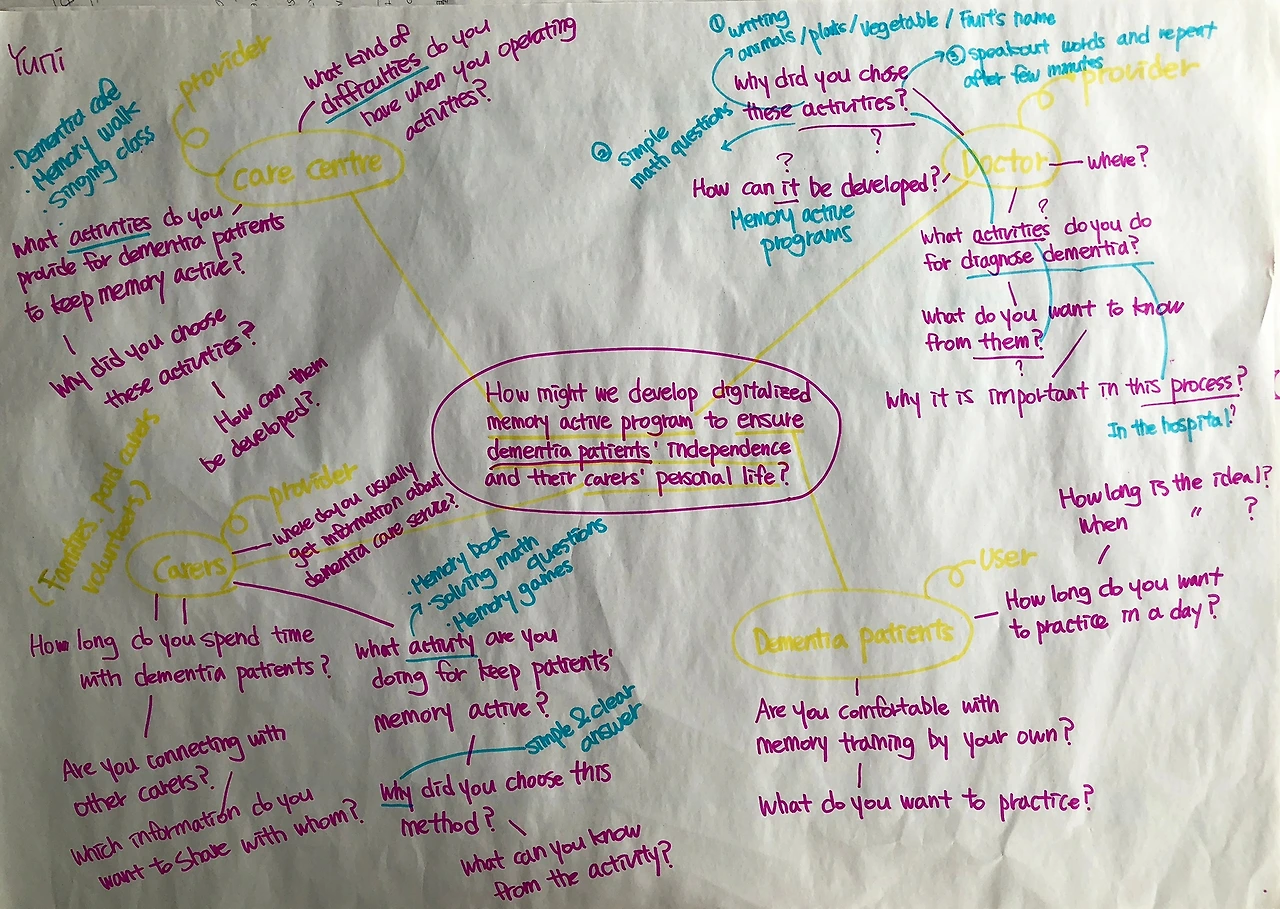 Yuri
provider
· Dementia cafe
· Memory walk
· Singing class
care centre
What kind of
difficulties do you
have when you operating
activities?
What activities do you
provide for dementia patients
to keep memory active?
Why did you choose
these activities?
How can them
be developed?
① writing
animals/plants/vegetable/Fruit's name
③ speakout words and repeat
after few minutes
② simple
math questions
Why did you chose
these activities?
?
provider
Doctor
where?
?
How can it be developed?
Memory active
programs
?
What activities do you do
for diagnose dementia?
What do you want to know
from them?
?
Why it is important in this process?
In the hospital?
How might we develop digitalized
memory active program to ensure
dementia patients' independence
and their carers' personal life?
(Families, paid carers
volunteers)
provider
Carers
where do you usually
get information about
dementia care service?
How long do you spend time
with dementia patients?
Are you connecting with
other carers?
Which information do you
want to share with whom?
· Memory book
· Solving math questions
· Memory games
What activity are you
doing for keep patients'
memory active?
simple & clear
answer
Why did you choose this
method?
What can you know
from the activity?
User
Dementia patients
How long is the ideal?
When " ?
How long do you want
to practice in a day?
Are you comfortable with
memory training by your own?
What do you want to practice?